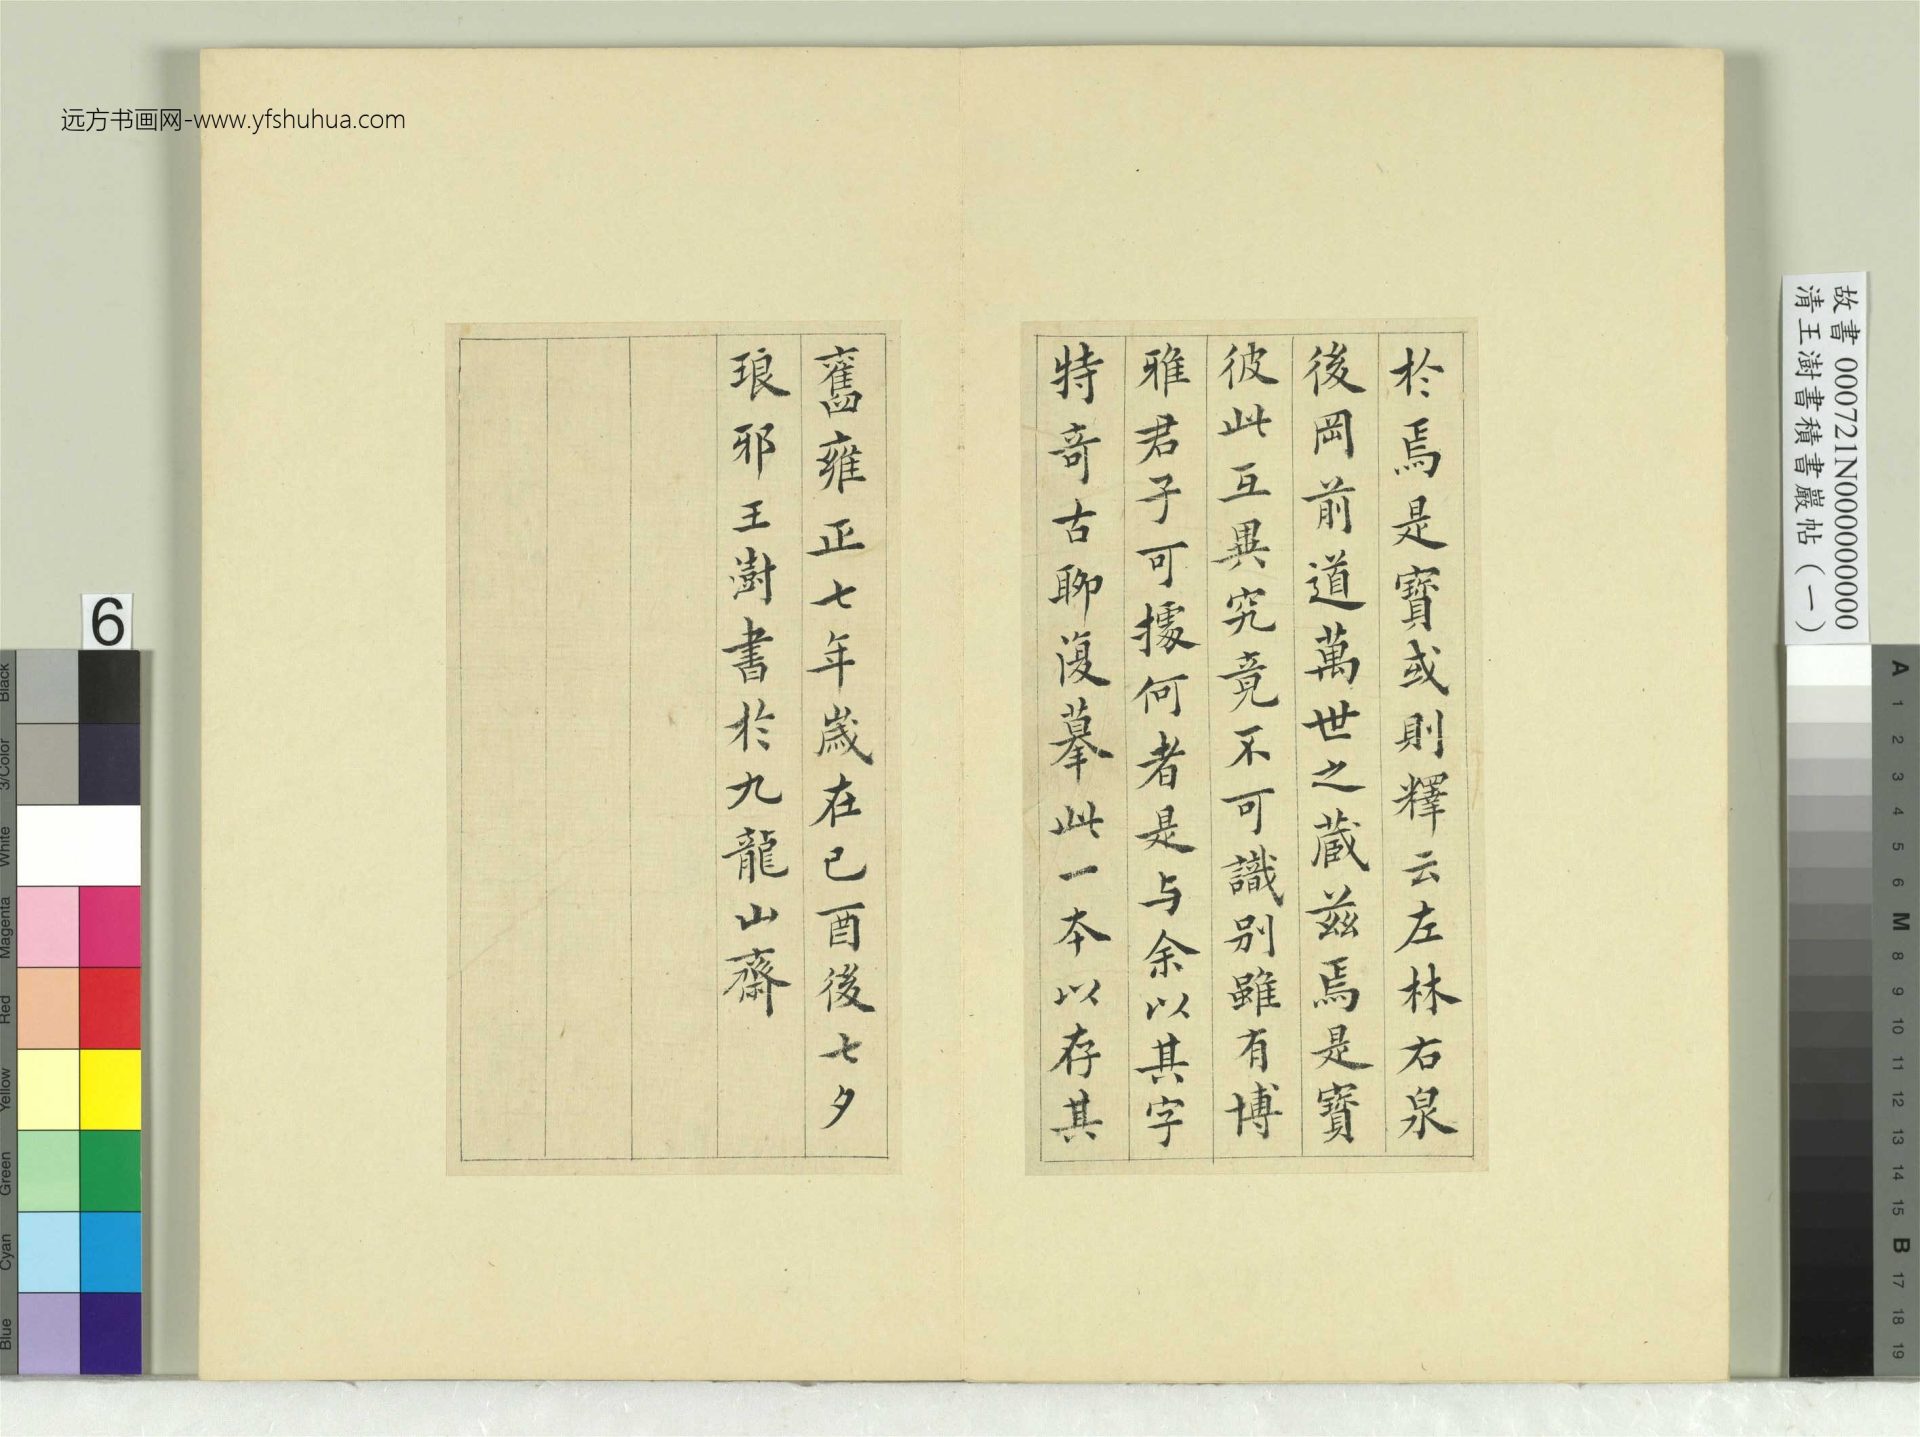 远方书画网-www.yfshuhua.com
於焉是寳或則釋云左林右泉
後岡前道萬世之藏兹焉是寳
彼此互異究竟不可識别雖有博
雅君子可據何者是与余以其字
特奇古聊復摹此一本以存其
舊雍正七年歲在己酉後七夕
琅邪王澍書於九龍山齋
故書 000721N000000000
清王澍書積書巖帖（一）
6
Black
3/Color
White
Magenta
Red
Yellow
Green
Cyan
Blue
A
1
2
3
4
5
6
M
8
9
10
11
12
13
14
15
B
17
18
19